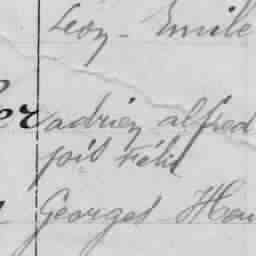 Leon - Emile
er adrien alfred
Félix
Georges Hen